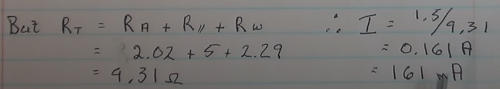 But R_T = R_A + R_// + R_W ∴ I = 1,5/9,31
= 2.02 + 5 + 2.29 = 0.161 A
= 9,31 Ω = 161 mA